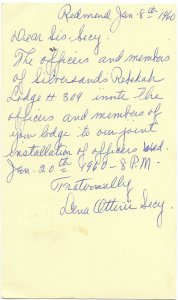 Redmond Jan. 8th 1960
Dear Sis. Secy.
The officers and members
of Silversands Rebekah
Lodge # 309 invite the
officers and members of
your lodge to our joint
Installation of officers Wed.
Jan. 20th 1960 - 8 P.M.
Fraternally
Secy.